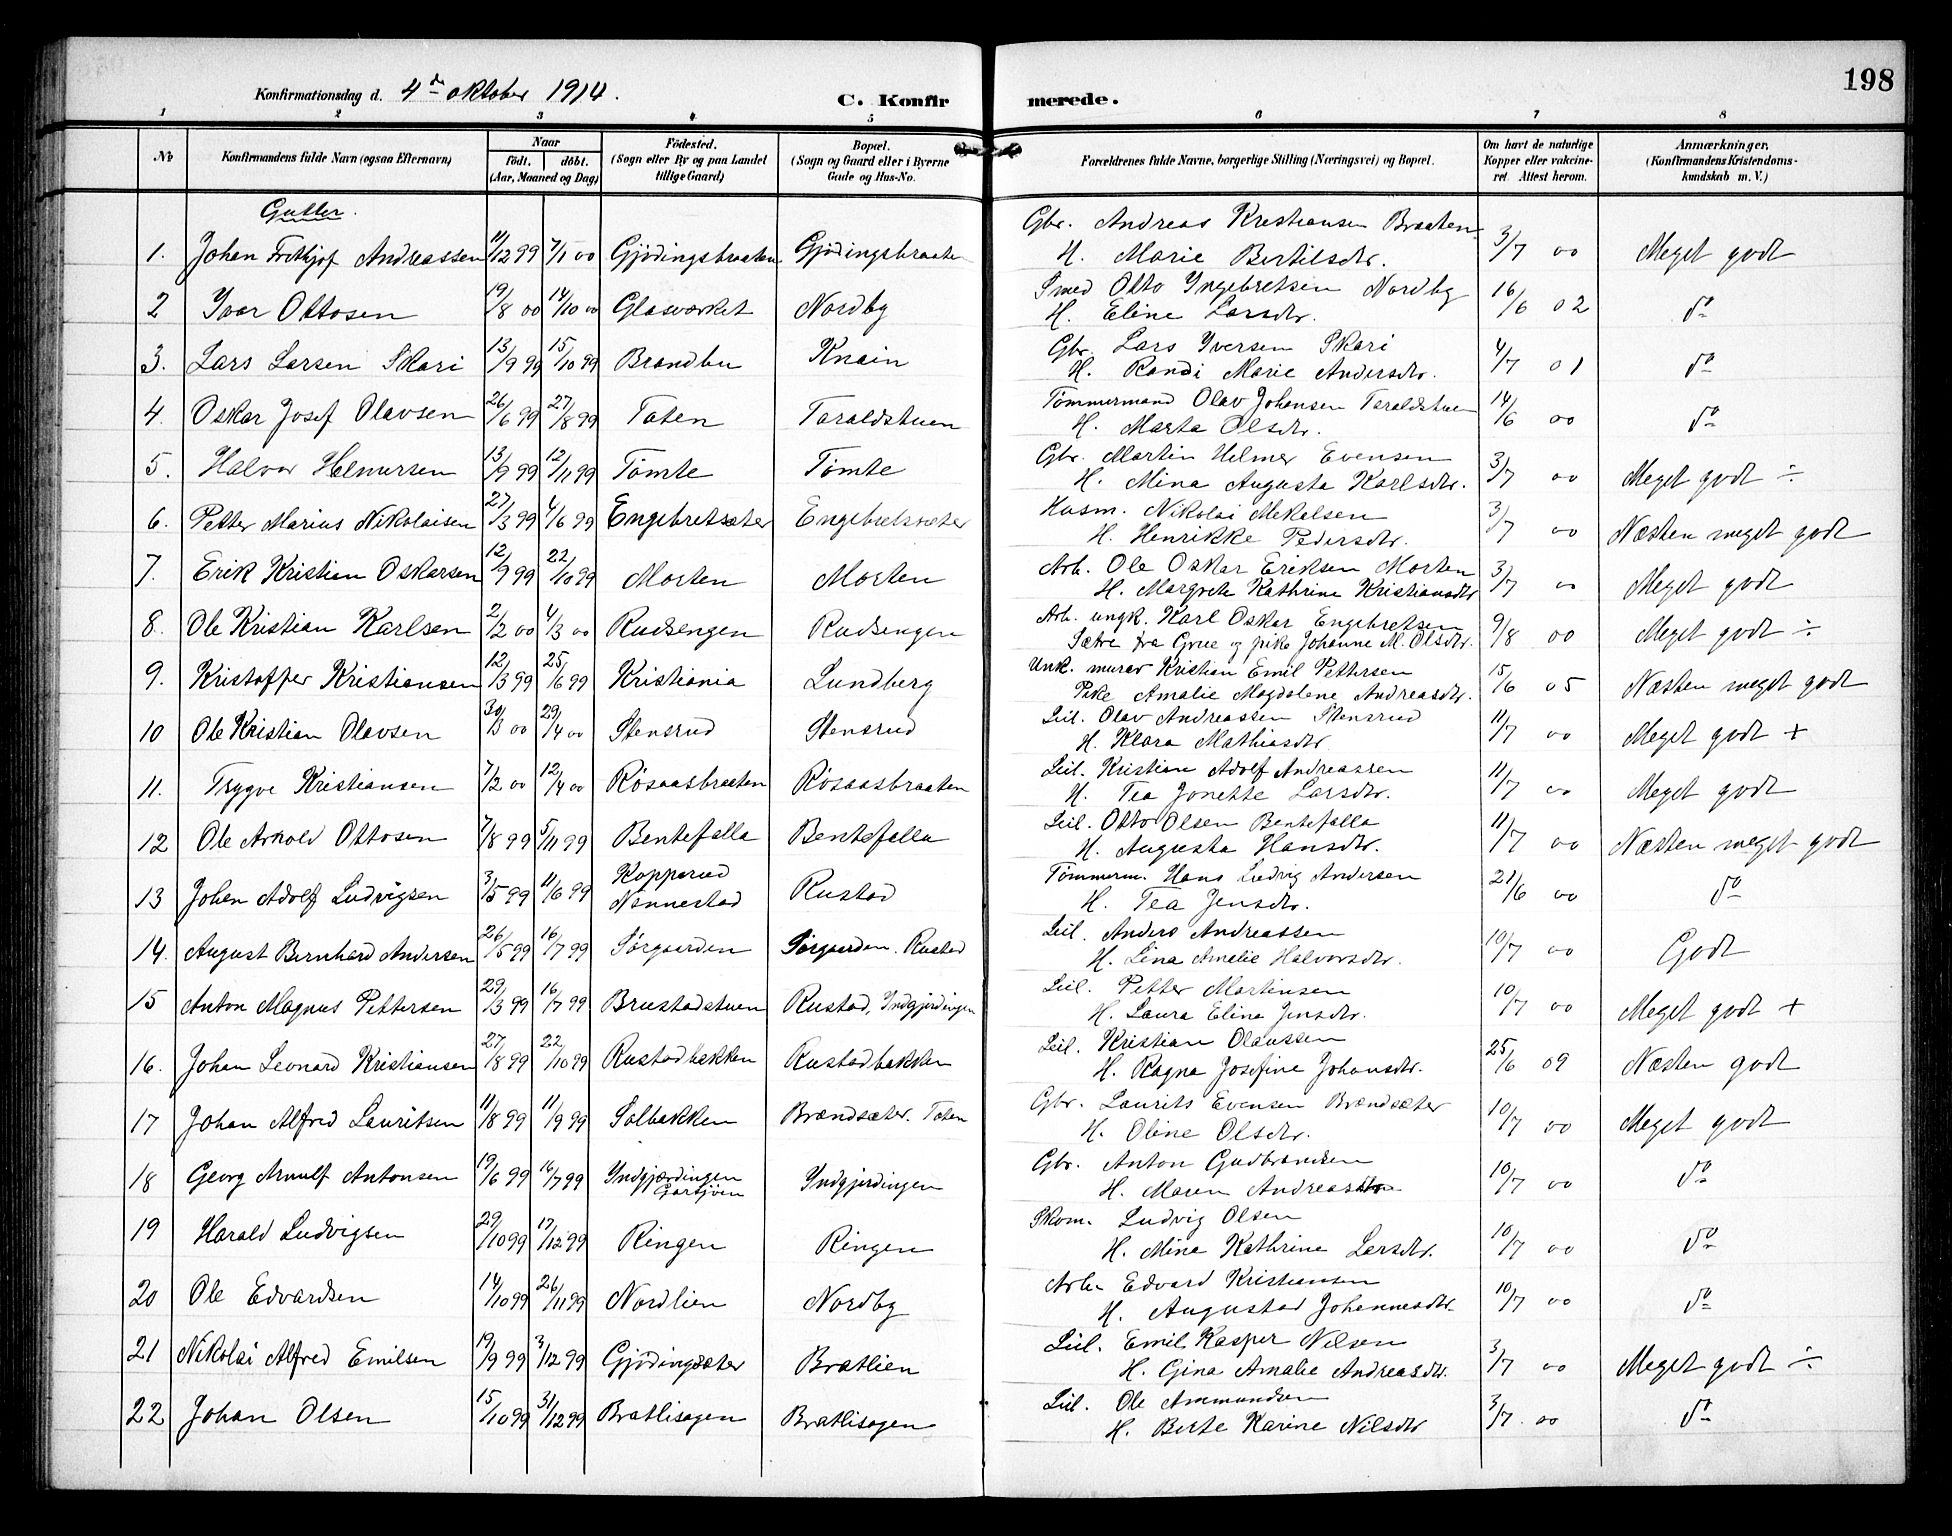 198
Konfirmationsdag d. 4de oktober 1914.
C. Konfirmerede.
1 2 3 4 5 6 7 8
No
Konfirmandens fulde Navn (ogsaa Efternavn)
Naar
födt. döbt.
(Aar, Maaned og Dag)
Födested.
(Sogn eller By og paa Landet
tillige Gaard)
Bopæl.
(Sogn og Gaard eller i Byerne
Gade og Hus-No.
Forældrenes fulde Navne, borgerlige Stilling (Næringsvei) og Bopæl.
Om havt de naturlige
Kopper eller vakcine-
ret. Attest herom.
Anmærkninger,
(Konfirmandens Kristendoms-
kundskab m. V.)
Gutter.
1. Johan Frithjof Andreassen 11/12 99 7/1 00 Gjødingsbraaten Gjødingsbraaten Gbr. Andreas Kristiansen Braaten 3/7 00 Meget godt
H. Marie Bertilsdtr.
2 Ivar Ottosen 19/8 00 14/10 00 Glasværket Nordby Smed Otto Ingebretsen Nordby 16/6 02 do
H. Eline Larsdtr.
3. Lars Larsen Skari 13/9 99 15/10 99 Brandbu Knain Gbr. Lars Iversen Skari 4/7 01 do
H. Randi Marie Andersdtr.
4. Oskar Josef Olavsen 26/6 99 27/8 99 Toten Taraldstuen Tømmermand Olav Johansen Taraldstuen 14/6 00 do
H. Marta Olsdtr.
5. Halvor Helmersen 13/9 99 12/11 99 Tømte Tømte Gbr. Martin Helmer Evensen 3/7 00 Meget godt ÷
H. Mina Augusta Karlsdtr.
6. Petter Marius Nikolaisen 27/3 99 4/6 99 Engebretsæter Engebretsæter Husm. Nikolai Mikalsen 3/7 00 Næsten meget godt
H. Henrikke Pedersdtr.
7. Erik Kristian Oskarsen 12/9 99 22/10 99 Morten Morten Arb. Ole Oskar Eriksen Morten 3/7 00 Meget godt
H. Margrete Kathrine Kristiansdtr
8. Ole Kristian Karlsen 2/2 00 4/3 00 Rudsengen Rudsengen Arb. ungk. Karl Oskar Engebretsen 9/8 00 Meget godt ÷
Sætre fra Grue og pike Johanne M. Olsdtr.
9. Kristoffer Kristiansen 12/3 99 25/6 99 Kristiania Lundberg Unk. murer Kristian Emil Pettersen 15/6 05 Næsten meget godt
Pike Amalie Magdalene Andreasdtr.
10 Ole Kristian Olavsen 30/3 00 29/4 00 Stensrud Stensrud Leil. Olav Andreassen Stensrud 11/7 00 Meget godt +
H. Klara Mathiasdtr.
11. Trygve Kristiansen 7/2 00 12/4 00 Røsaasbraaten Røsaasbraaten Leil. Kristian Adolf Andreassen 11/7 00 Meget godt
H. Tea Jonette Larsdtr.
12 Ole Arnold Ottosen 7/8 99 5/11 99 Bentefalla Bentefalla Leil. Otto Olsen Bentefalla 11/7 00 Næsten meget godt
H. Augusta Hansdtr.
13 Johan Adolf Ludvigsen 3/5 99 11/6 99 Kopperud Nannestad Rustad Tømmerm. Hans Ludvig Andersen 21/6 00 do
H. Tea Jensdtr.
14. August Bernhard Andersen 26/5 99 16/7 99 Sørgaarden Sørgaarden. Rustad Leil. Anders Andreassen 10/7 00 Godt
H. Lina Amalie Halvorsdtr.
15 Anton Magnus Pettersen 29/3 99 16/7 99 Brustadstuen Rustad, Indgjerdingen Leil. Petter Martinsen 10/7 00 Meget godt +
H. Laura Elina Jensdtr.
16. Johan Leonard Kristiansen 27/8 99 22/10 99 Rustadbakken Rustadbakken Leil. Kristian Olaussen 25/6 09 Næsten godt
H. Ragna Josefine Johansdtr.
17 Johan Alfred Lauritsen 11/8 99 11/9 99 Solbakken Brændsæter. Toten Gbr. Laurits Evensen Brændsæter 10/7 00 Meget godt
H. Oline Olsdtr.
18 Georg Arnulf Antonsen 19/6 99 16/7 99 Indgjærdingen Garsjøen Indgjerdingen Gbr. Anton Gudbrandsen 10/7 00 do
H. Maren Andreasdtr
19 Harald Ludvigsen 29/10 99 17/12 99 Ringen Ringen Skom. Ludvig Olsen 10/7 00 do
H. Mina Kathrine Larsdtr.
20 Ole Edvardsen 14/10 99 26/11 99 Nordlien Nordby Arb. Edvard Kristiansen 10/7 00 do
H. Augustad Johannesdtr.
21 Nikolai Alfred Emilsen 19/9 99 3/12 99 Gjødingsæter Bratlien Leil. Emil Kasper Nilsen 3/7 00 Meget godt ÷
H. Gina Amalie Andreasdtr.
22 Johan Olsen 15/10 99 31/12 99 Bratlisagen Bratlisagen Leil. Ole Ammundsen 3/7 00 do
H. Berte Karine Nilsdtr